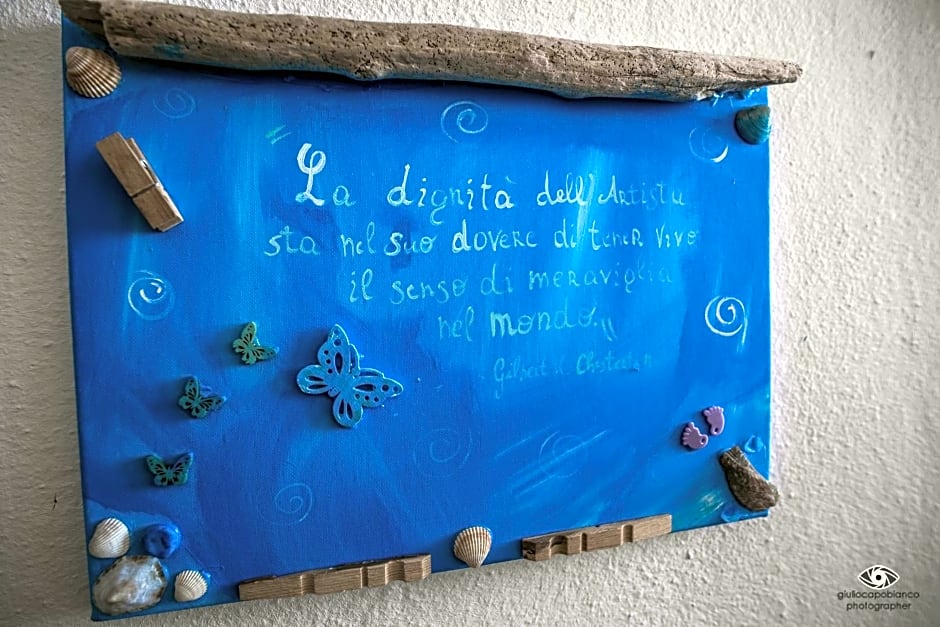 "La dignità dell'Artista
sta nel suo dovere di tener vivo
il senso di meraviglia
nel mondo."
Gilbert K. Chesterton
giuliocapobianco
photographer